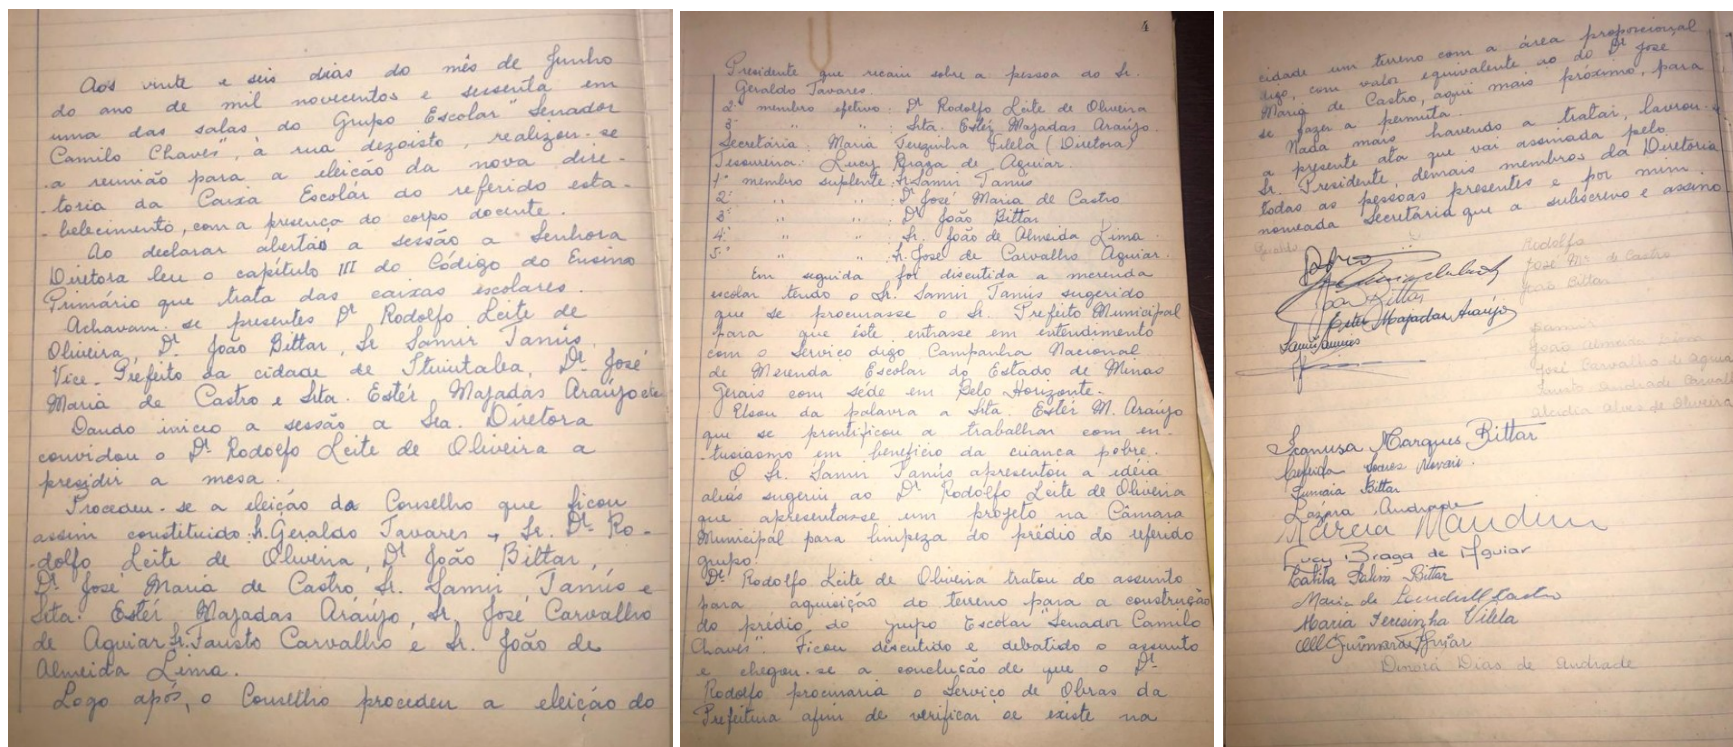 Aos vinte e seis dias do mês de Junho
do ano de mil novecentos e sessenta em
uma das salas, do Grupo Escolar "Senador
Camilo Chaves", a rua dezoisto, realizou-se
a reunião para a eleição da nova dire-
-toria da Caixa Escolár do referido esta-
-belecimento, com a presença do corpo docente.
Ao declarar abertão a sessão a Senhora
Diretora leu o capítulo III do Código do Ensino
Primário que trata das caixas escolares.
Achavam-se presentes Dr Rodolfo Leite de
Oliveira, Dr. João Bittar, Sr Samir Tanús,
Vice-Prefeito da cidade de Ituiutaba, Dr. José
Maria de Castro e Srta. Estér Majadas Araújo etc
Dando inicio a sessão a Sra. Diretora
convidou o Dr. Rodolfo Leite de Oliveira a
presidir a mesa.
Procedeu-se a eleição do Conselho que ficou
assim constituido: Sr. Geraldo Tavares, Sr. Dr. Ro-
-dolfo Leite de Oliveira, Dr João Bittar,
Dr. José Maria de Castro, Sr. Samir Tanús e
Srta. Estér Majadas Araújo, Sr. José Carvalho
de Aguiar, Sr. Fausto Carvalho e Sr. João de
Almeida Lima.
Logo após, o Conselho procedeu a eleição do
4
Presidente que recaiu sobre a pessoa do Sr.
Geraldo Tavares.
2º membro efetivo: Dr. Rodolfo Leite de Oliveira
3º " " : Srta. Estér Majadas Araújo.
Secretária: Maria Terezinha Vilela (Diretora)
Tesoureira: Lucy Braga de Aguiar.
1º membro suplente: Sr. Samir Tanús
2º " " : Dr José Maria de Castro
3º " " : Dr João Bittar
4º " " : Sr. João de Almeida Lima.
5º " " : Sr. José de Carvalho Aguiar.
Em seguida foi discutida a merenda
escolar tendo o Sr. Samir Tanús sugerido
que se procurasse o Sr. Prefeito Municipal
para que êste entrasse em entendimento
com o Serviço digo Campanha Nacional
de Merenda Escolar do Estado de Minas
Gerais com séde em Belo Horizonte.
Usou da palavra a Srta. Estér M. Araújo
que se prontificou a trabalhar com en-
-tusiasmo em benefício da criança pobre.
O Sr. Samir Tanús apresentou a idéia
aliás sugeriu ao Dr Rodolfo Leite de Oliveira
que apresentasse um projeto na Câmara
Municipal para limpeza do prédio do referido
grupo.
Dr. Rodolfo Leite de Oliveira tratou do assunto
para aquisição do terreno para a construção
do prédio do grupo Escolar Senador Camilo
Chaves". Ficou discutido e debatido o assunto
e chegou-se a conclusão de que o Dr.
Rodolfo procuraria o Serviço de Obras da
Prefeitura afim de verificar se existe na
cidade um terreno com a área proporcional
digo, com valor equivalente ao do Dr José
Maria de Castro, aqui mais próximo, para
se fazer a permuta.
Nada mais havendo a tratar, lavrou-se
a presente ata que vai assinada pelo
Sr. Presidente, demais membros da Diretoria
todas as pessoas presentes e por mim
nomeada Secretária que a subscrevo e assino
Geraldo
Rodolfo
José Mª de Castro
João Bittar
João Bittar
Ester Majadas Araújo
Samir Tannus
João Almeida Lima
José Carvalho de Aguiar
Fausto Andrade Carvalho
Alcidia Alves de Oliveira
Ivanusa Marques Bittar
Soares Novais.
Jumaia Bittar
Lazara Andrade
Lucy Braga de Aguiar
Latifa Salim Bittar
Maria de Lourdes Castro
Maria Teresinha Vilela
Guimarães Aguiar
Dinorá Dias de Andrade